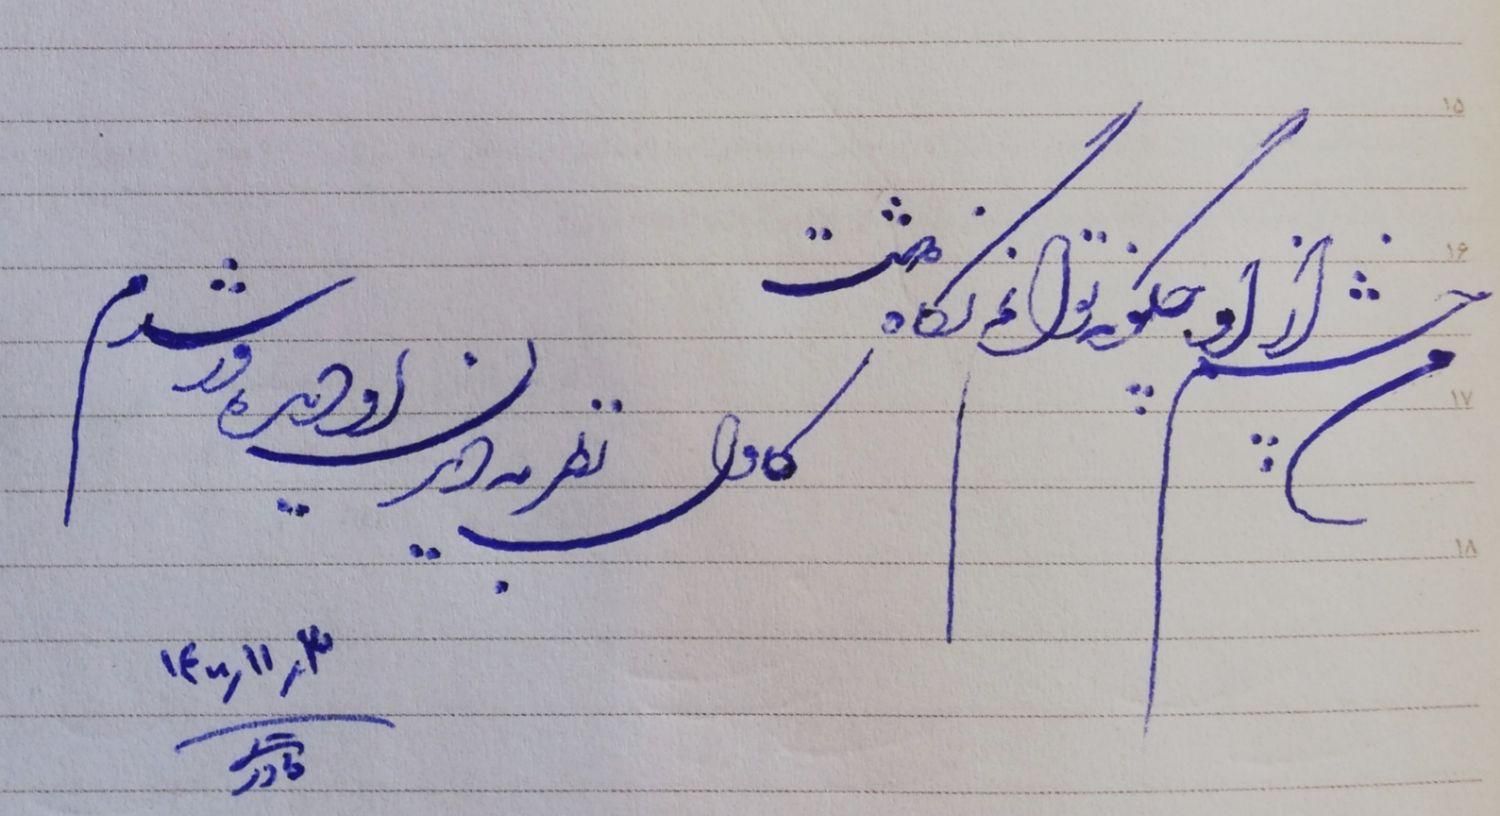 ۱۵
۱۶
۱۷
۱۸
من چشم از او چگونه توانم نگاه داشت
کاول نظر به دیدن او دیده ور شدم